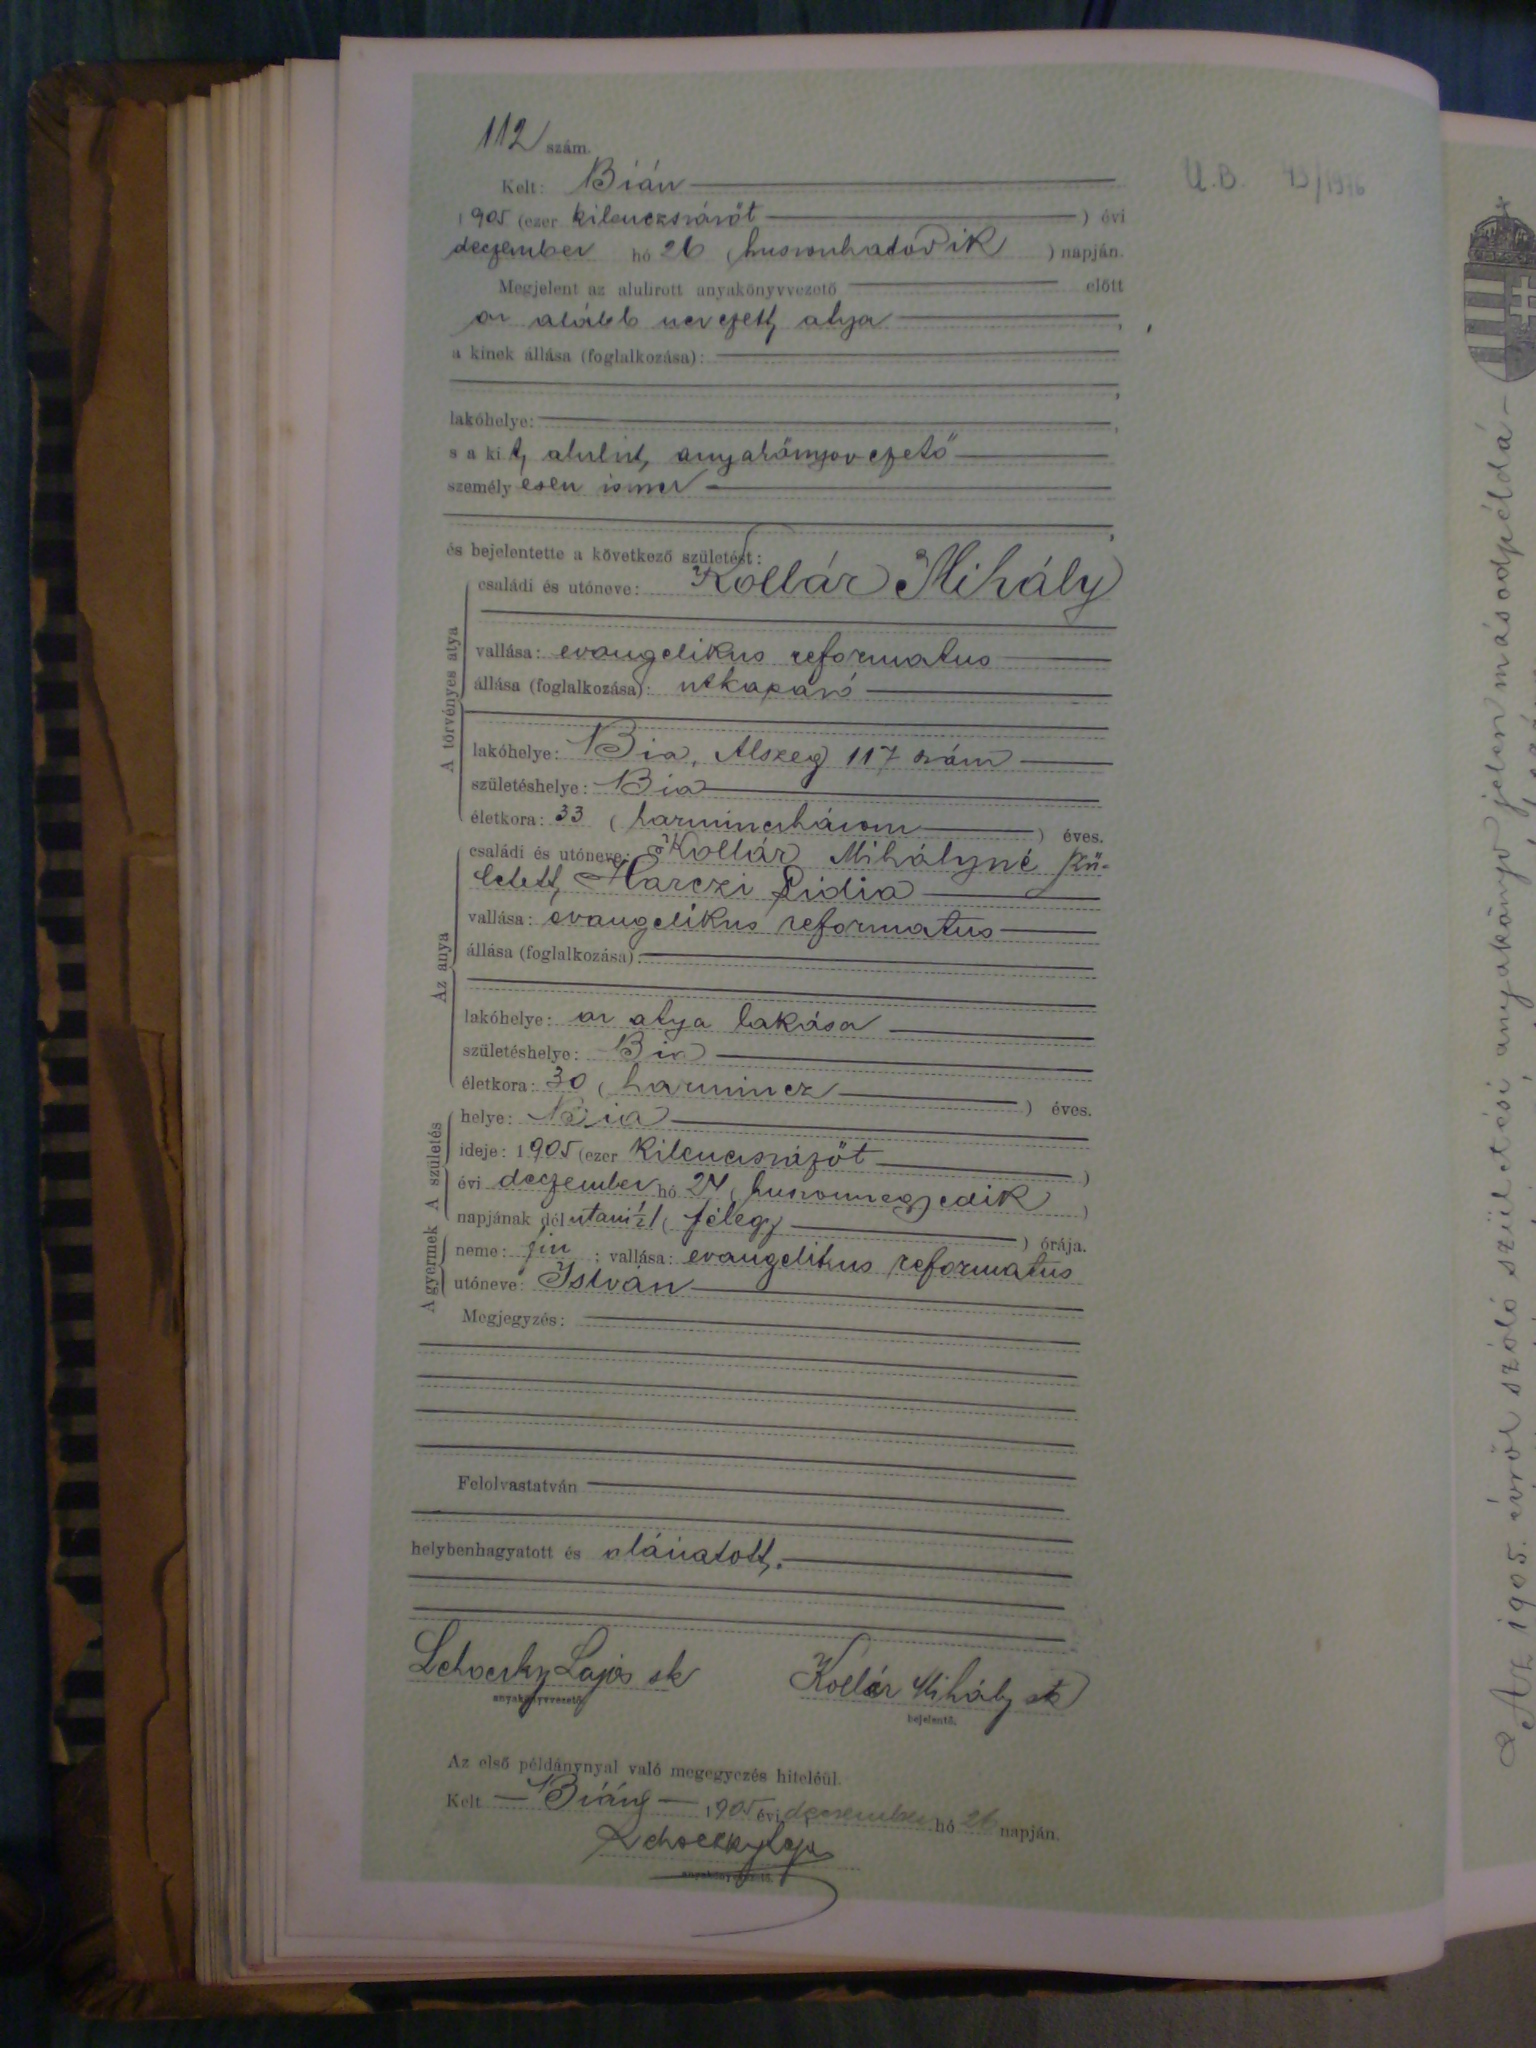 112 szám.
U.B. 43/1976
Kelt: Bián
1905 (ezer kilenczszázöt ) évi
deczember hó 26 (huszonhatodik ) napján.
Megjelent az alulirott anyakönyvvezető előtt
az alább nevezett atya ,
a kinek állása (foglalkozása):
lakóhelye:
s a kit, alulirt, anyakönyvvezető
személyesen ismer
és bejelentette a következő születést:
A törvényes atya
családi és utóneve: Kollár Mihály
vallása: evangelikus reformatus
állása (foglalkozása): utkaparó
lakóhelye: Bia, Alszeg 117 szám
születéshelye: Bia
életkora: 33 (harminczhárom ) éves.
Az anya
családi és utóneve: Kollár Mihályné szü-
letett, Harczi Lidia
vallása: evangelikus reformatus
állása (foglalkozása):
lakóhelye: az atya lakása
születéshelye: Bia
életkora: 30 (harmincz ) éves.
A születés
helye: Bia
ideje: 1905 (ezer kilenczszázöt )
évi deczember hó 24 (huszonnegyedik )
napjának dél utáni ½1 (félegy ) órája.
A gyermek
neme: fiu ; vallása: evangelikus reformatus
utóneve: István
Megjegyzés:
Felolvastatván
helybenhagyatott és aláiratott.
Lehoczky Lajos sk Kollár Mihály sk
anyakönyvvezető. bejelentő.
Az első példánynyal való megegyezés hiteléül.
Kelt Bián 1905 évi deczember hó 26 napján.
Lehoczky Lajos
anyakönyvvezető.
Az 1905. évről szóló születési anyakönyv jelen másodpéldá-